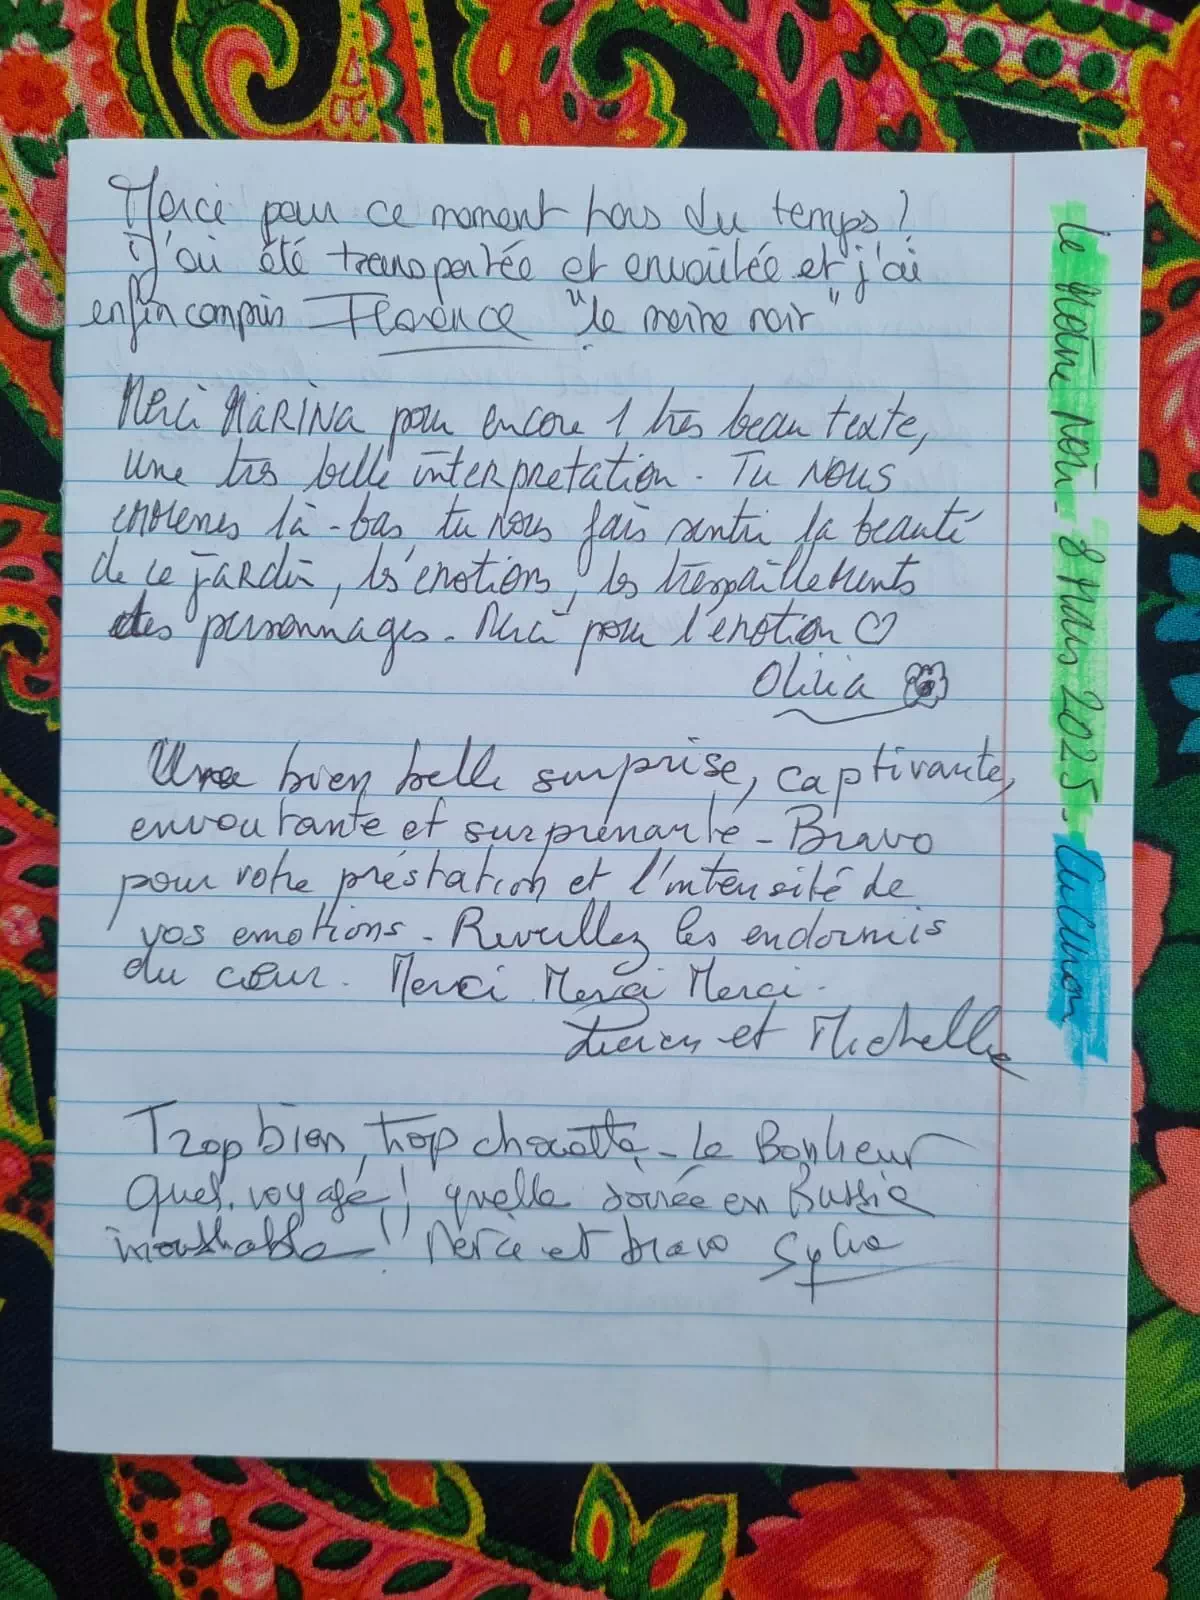 Merci pour ce moment hors du temps !
J'ai été transportée et envoûtée et j'ai
enfin compris Florence "le moine noir"
Merci MARINA pour encore 1 très beau texte,
une très belle interpretation. Tu nous
emmenes là-bas, tu nous fais sentir la beauté
de ce jardin, les émotions, les tressaillements
des personnages. Merci pour l'emotion ♡
Olivia
Une bien belle surprise, captivante,
envoutante et surprenante - Bravo
pour votre préstation et l'intensité de
vos emotions - Reveillez les endormis
du cœur. Merci Merci Merci.
et Michelle
Trop bien, trop chouette - Le Bonheur
Quel voyage ! quelle soirée en Russie
inoubliable ! Merci et bravo Sylvie
Le Moine Noir - 8 Mars 2025 -